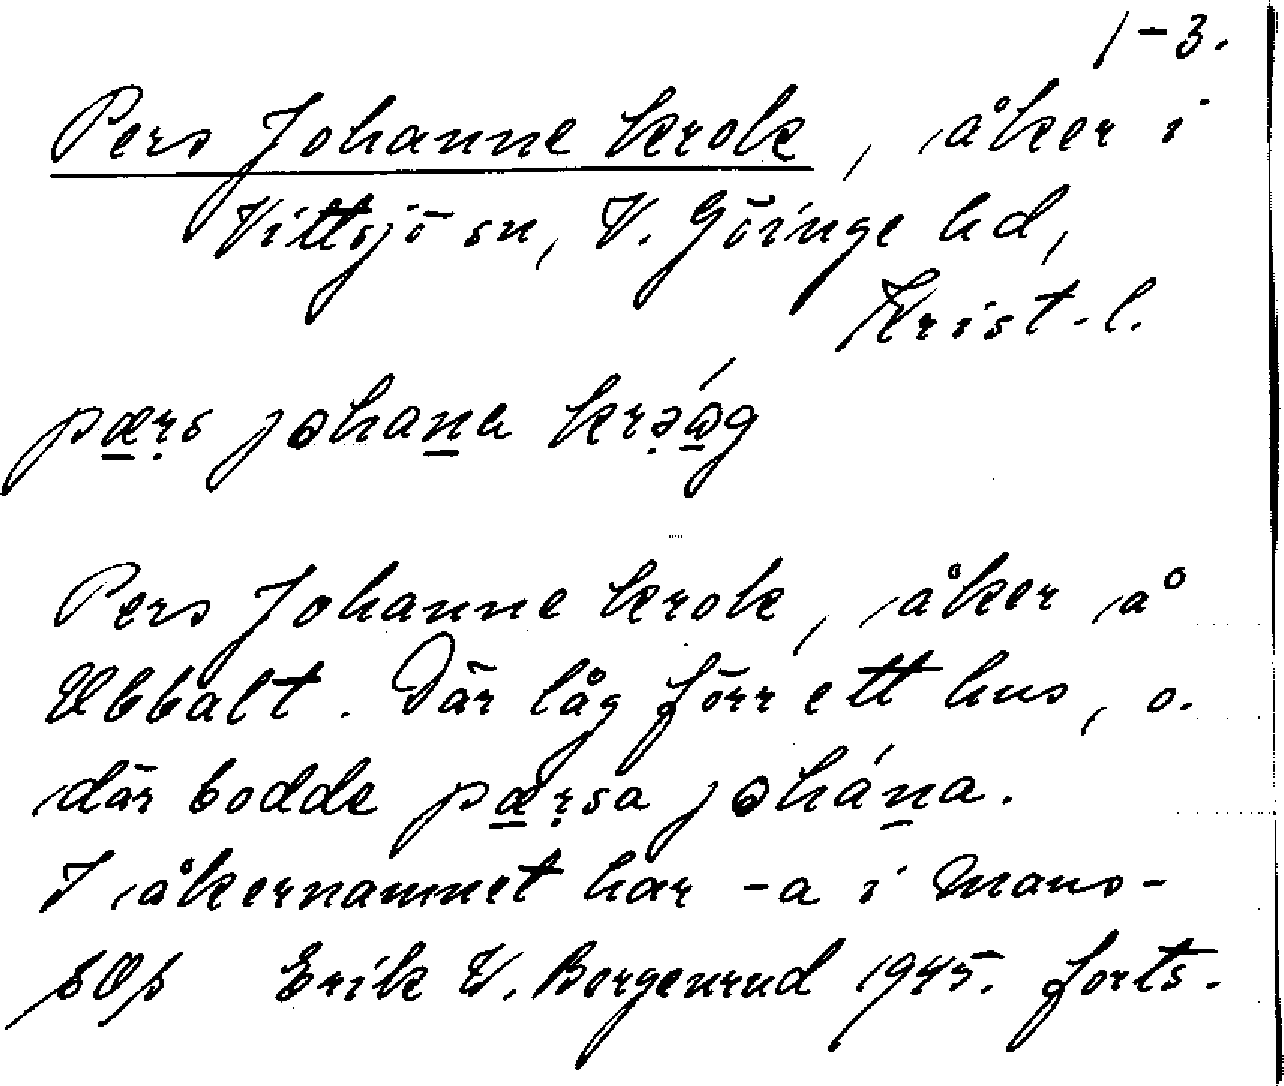 1-3.
Pers Johanne krok, åker i
Vittsjö sn, V. Göinge hd,
Krist-l.
pæ̱ṛs johaṉa krə̣ǻ̱g
Pers Johanne krok, åker å
Ubbalt. Där låg förr ett hus, o.
där bodde pæ̱ṛsa johá̱ṉa.
I åkernamnet har -a i mans-
Erik V. Borgenrud 1945. forts.